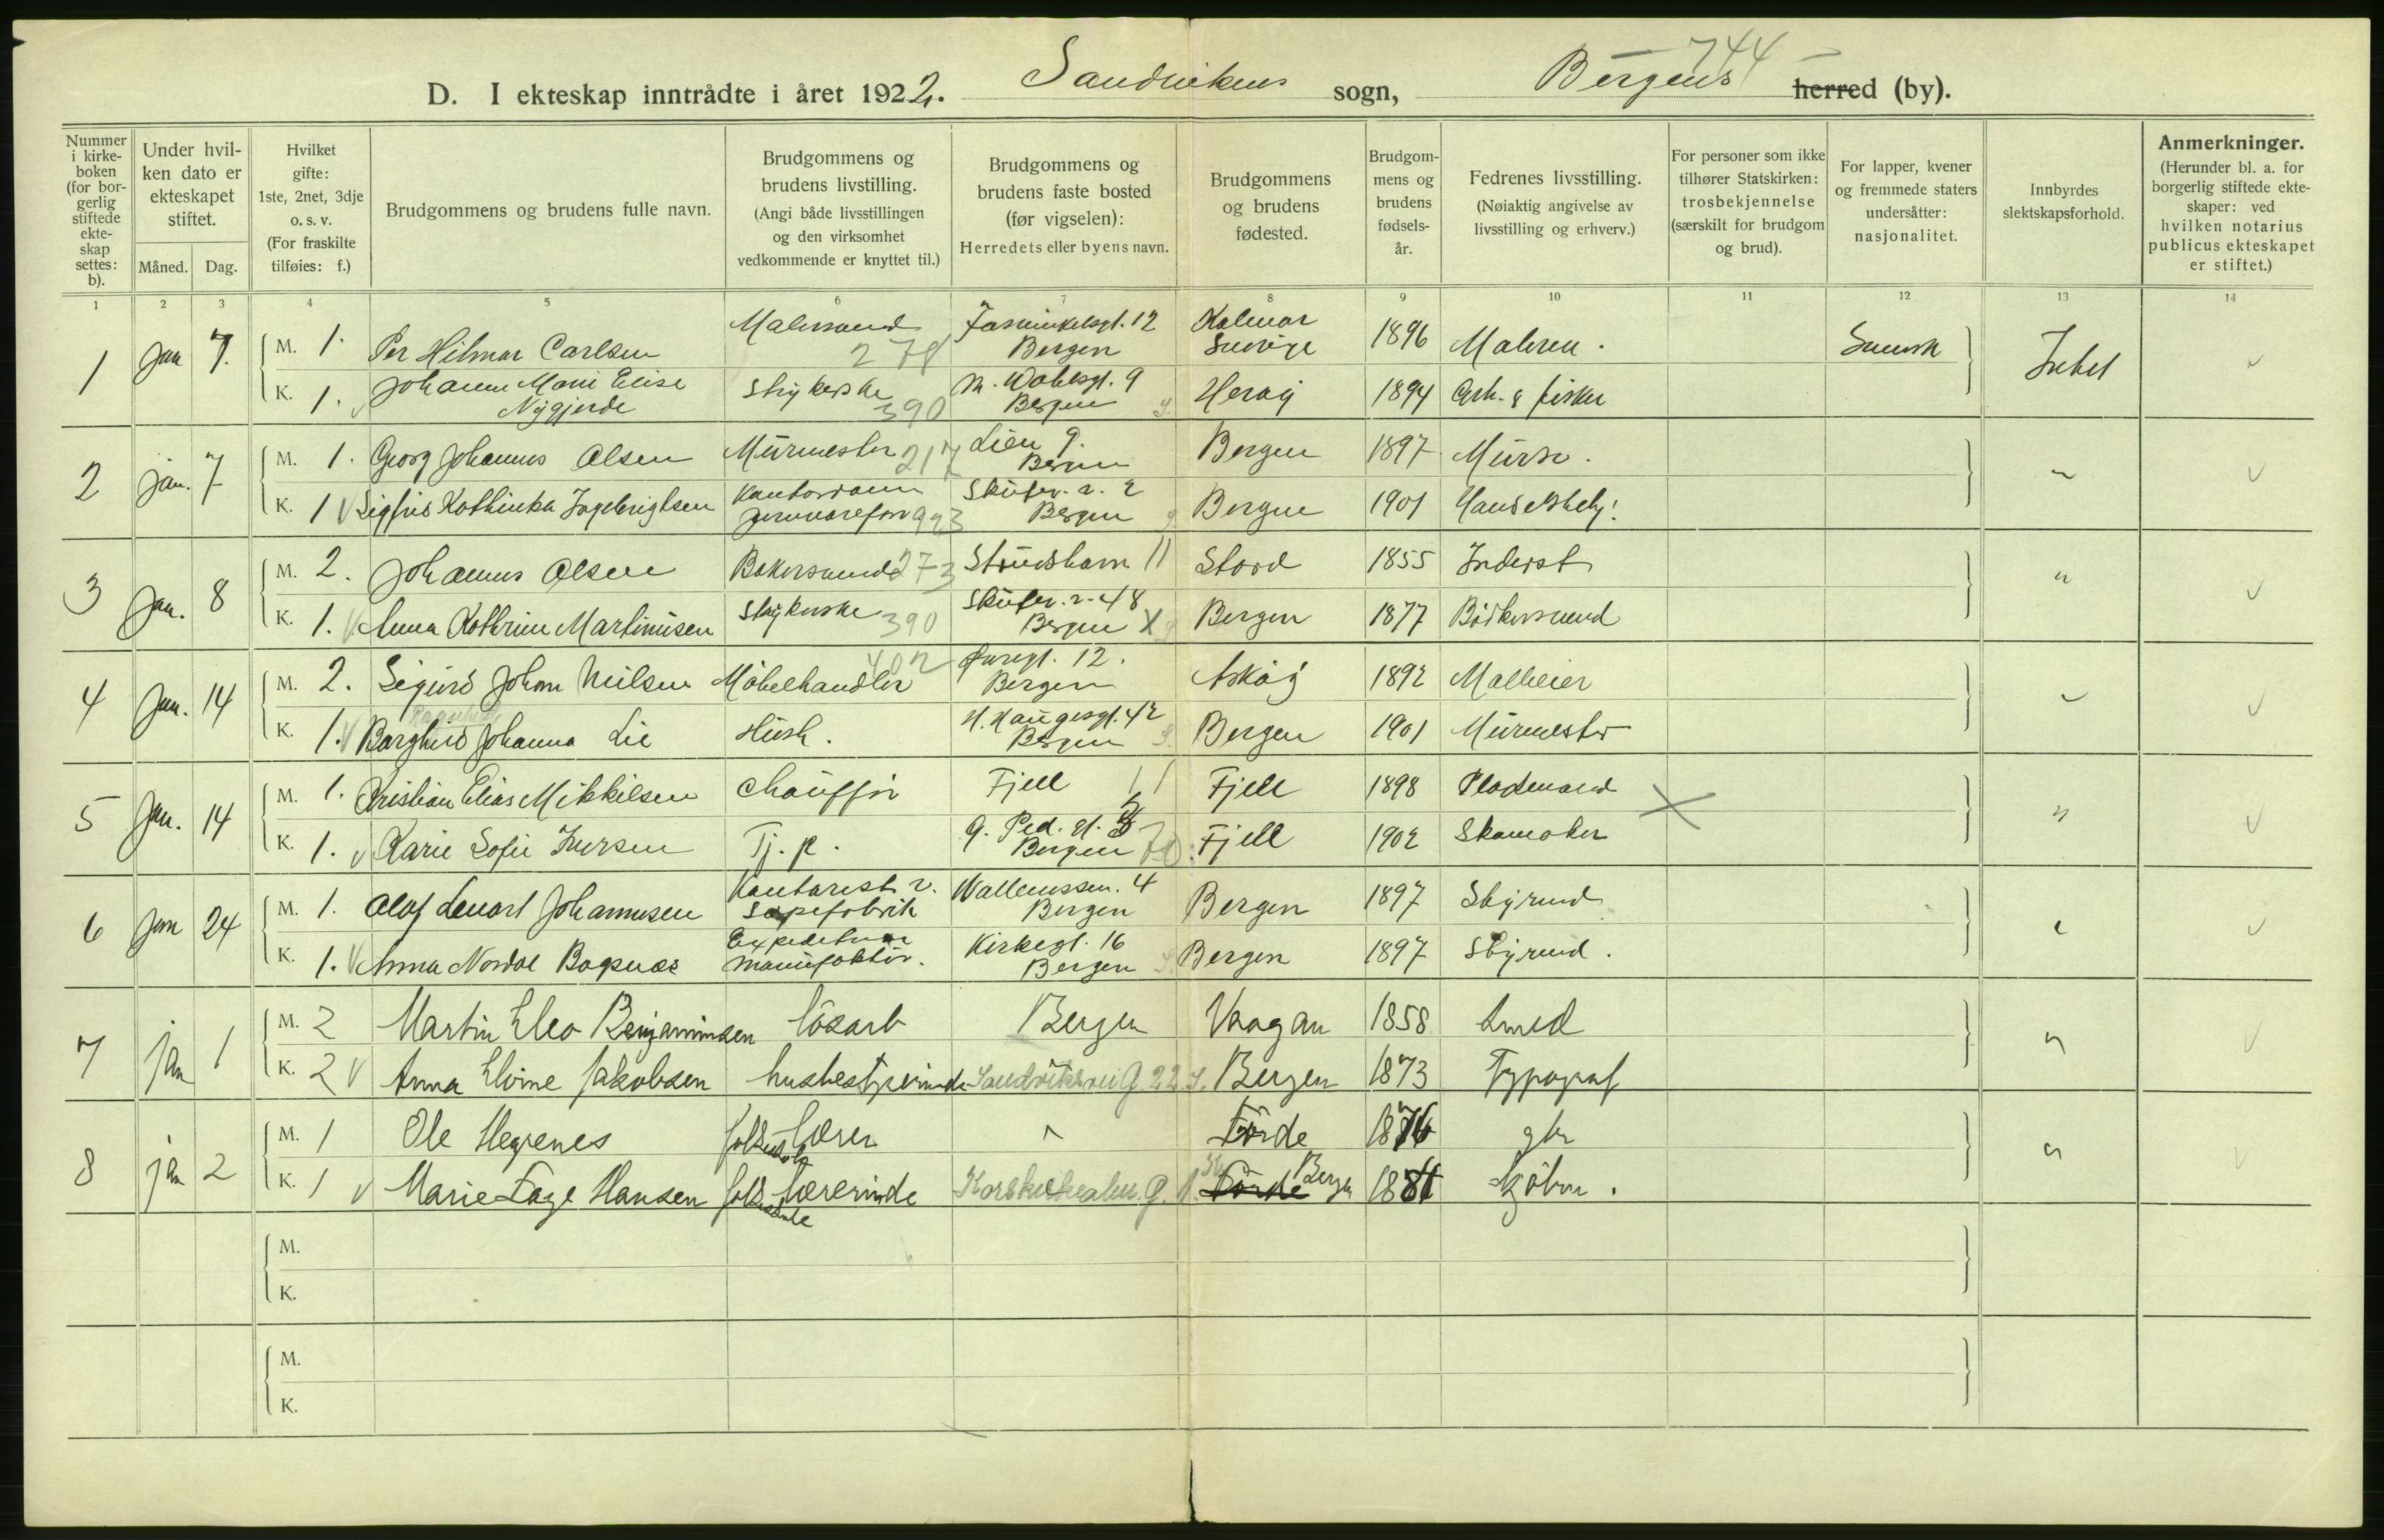 744
D. I ekteskap inntrådte i året 1922. Sandvikens sogn, Bergens herred (by).
Nummer i kirke-boken (for bor-gerlig stiftede ekte-skap settes: b).
Under hvil-ken dato er ekteskapet stiftet.
Måned. Dag.
Hvilket gifte: 1ste, 2net, 3dje o. s. v. (For fraskilte tilføies: f.)
Brudgommens og brudens fulle navn.
Brudgommens og brudens livstilling. (Angi både livsstillingen og den virksomhet vedkommende er knyttet til.)
Brudgommens og brudens faste bosted (før vigselen): Herredets eller byens navn.
Brudgommens og brudens fødested.
Brudgom-mens og brudens fødsels-år.
Fedrenes livsstilling. (Nøiaktig angivelse av livsstilling og erhverv.)
For personer som ikke tilhører Statskirken: trosbekjennelse (særskilt for brudgom og brud).
For lapper, kvener og fremmede staters undersåtter: nasjonalitet.
Innbyrdes slektskapsforhold.
Anmerkninger. (Herunder bl. a. for borgerlig stiftede ekte-skaper: ved hvilken notarius publicus ekteskapet er stiftet.)
1 2 3 4 5 6 7 8 9 10 11 12 13 14
1 Jan 7. M. 1. Per Hilmar Carlsen Malersvend 278 12 Bergen Kalmar Sverige 1896 Malerm. Svensk Intet
K. 1. Johanne Marie Elise Nygjerde Strykerske 390 M. Wahlsgt. 9 Bergen Herøy 1894 Arb. & fisker
2 jan. 7 M. 1. Georg Johannes Olsen Murmester 217 Lien 9. Bergen Bergen 1897 Murer. "
K. 1 Sigfrid Kathinka Ingebrigtsen Kontordame 993 Skutev. v. 2 Bergen Bergen 1901 Handelsbetj.
3 Jan. 8 M. 2. Johannes Olsen Bakersvend 273 Strudshavn 11 Stord 1855 Inderst "
K. 1. Anna Kathrine Martinusen Strykerske 390 Skutev. v. 48 Bergen X Bergen 1877 Bødkersvend
4 Jan. 14 M. 2. Sigurd Johan Nilsen Møbelhandler 402 Øvregt. 12. Bergen Askøy 1892 "
K. 1. Borghild Johanna Lie Hush. H. Haugesgt. 42 Bergen Bergen 1901 Murmester
5 Jan. 14 M. 1. Kristian Elias Mikkelsen Chauffør Fjell 11 Fjell 1898 X "
K. 1. Karie Sofie Iversen Tj. p. Bergen Fjell 1902 Skomaker
6 Jan 24 M. 1. Olaf Lenart Johannesen Kontorist v. Sæpefabrik 4 Bergen Bergen 1897 Styrmd "
K. 1. Anna Nordal Bognæs Expeditrice manufaktur. Kirkegt. 16 Bergen Bergen 1897 Styrmd.
7 jan 1 M. 2 Martin Eleo Benjaminsen løsarb Bergen Vaagan 1858 smed "
K. 2 Anna Elvine Jakobsen husbestyrerinde Sandviksvei 922 Bergen 1873 Typograf
8 jan 2 M. 1 Ole Hegrenes folkeskole Lærer " Førde 1876 gbr "
K. 1 Marie Fage Hansen folkeskole Lærerinde Førde Bergen 1881 kjøbm.
M.
K.
M.
K.